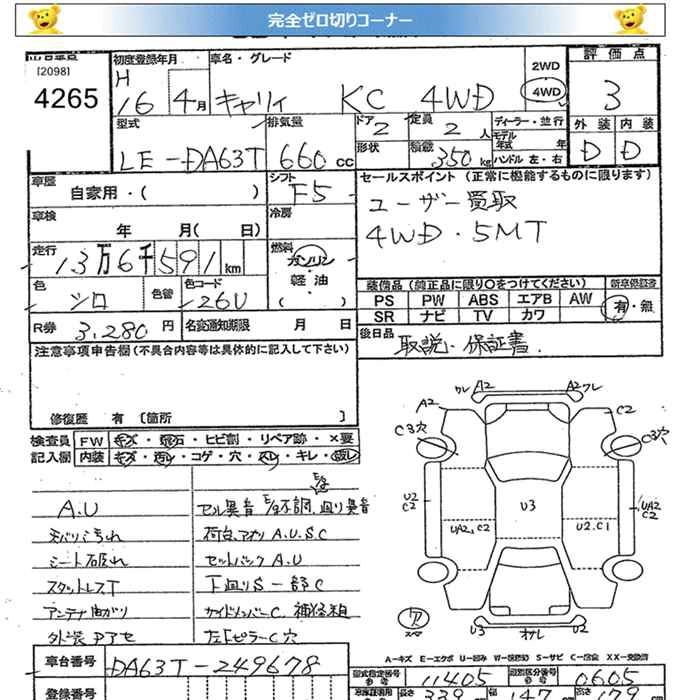 完全ゼロ切りコーナー
出品番号 初度登録年月 車名・グレード 2WD 評価点
[2098] H 4WD
4265 16 4月 キャリィ KC 4WD 3
型式 排気量 ドア 定員 ディーラー・並行 外装 内装
LE-DA63T 660cc 2 2人 モデル年式 年 D D
形状 積載 350kg ハンドル 左・右
車歴 自家用・( ) シフト F5 セールスポイント (正常に機能するものに限ります)
車検 年 月( 日) 冷房 ユーザー買取
走行 13万6千591km 燃料 ガソリン・軽油・( ) 4WD・5MT
色 シロ 色替 色コード 26U 装備品 (純正品に限り○をつけてください) 新車保証書
PS PW ABS エアB AW 有・無
SR ナビ TV カワ
R券 3,280円 名変通知期限 月 日 後日品 取説・保証書
注意事項申告欄(不具合内容等は具体的に記入して下さい)
修復歴 有 [箇所 ]
検査員 FW キズ・飛石・ヒビ割・リペア跡・×要
記入欄 内装 キズ・汚レ・コゲ・穴・スレ・キレ・破レ
A.U セル異音 E/g不調、廻り異音
天バリ汚れ 荷台、アオリ A.U.S.C
シート破れ セットバック A.U
スタットレスT 下廻りS 一部C
アンテナ曲がり サイドメンバーC、補修粗
外装色アセ 左Fピラー C穴
ワレ A2 A2 ワレ
A2 C2
C3穴 C3穴
U2 C2 U3 UA2 C2
UA2、C2 U2.C1
U3 オサレ U2
A-キズ E-エクボ U-凹み W-波修理 S-サビ C-腐食 XX-交換済
車台番号 DA63T-249678 型式指定番号 11405 類別区分番号 0605
登録番号 長さ 339 幅 147 高さ 179